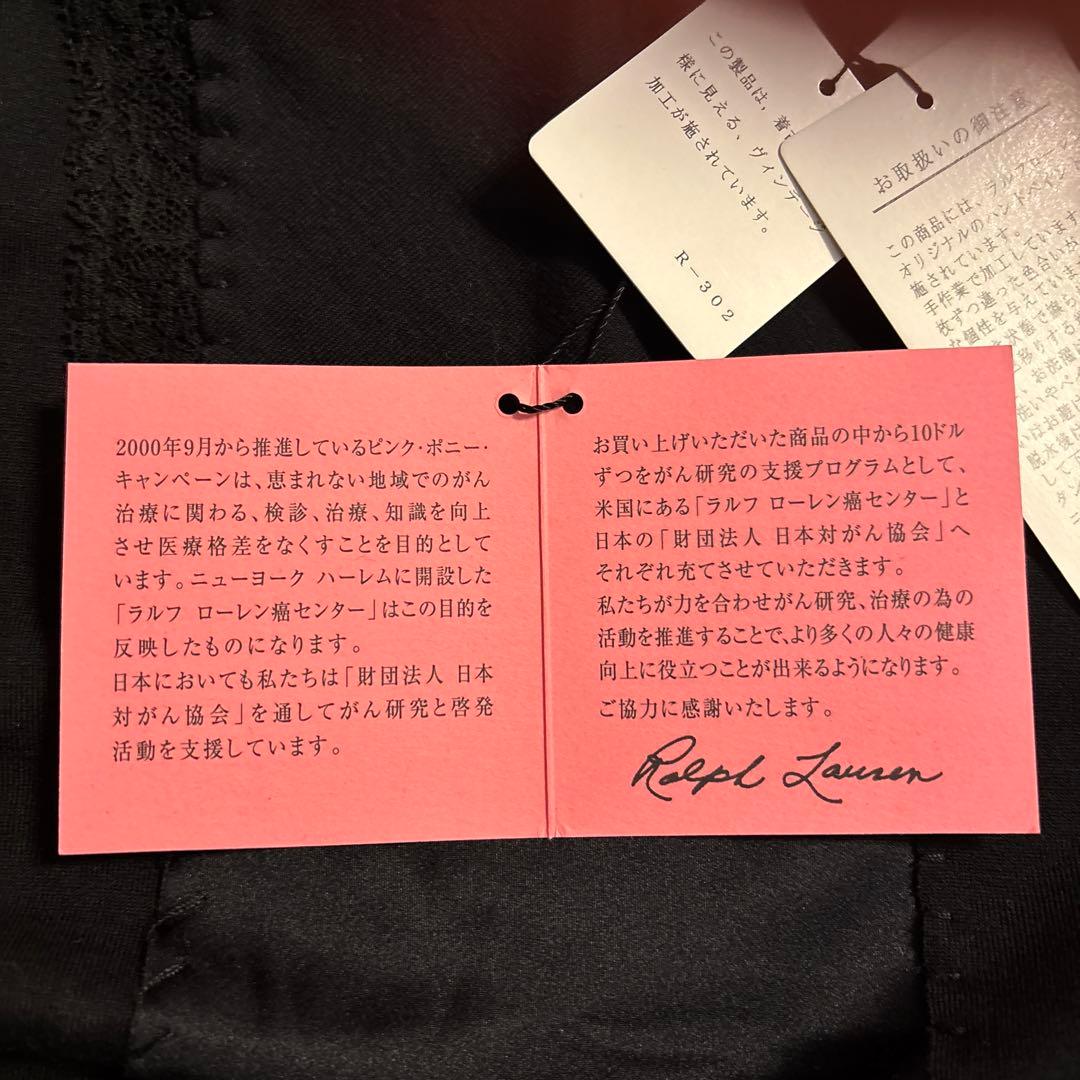 この製品は、着
様に見える、ヴィンテージ
加工が施されています。
R-302
お取扱いの御注意
この商品には、ラルフロー
オリジナルのハンドペイン
施されています。
手作業で加工しています
枚ずつ違った色合いが
な個性を与えていま
状態で
移りする
お洗濯
いやペ
お避け
脱水後
して下
2000年9月から推進しているピンク・ポニー・
キャンペーンは、恵まれない地域でのがん
治療に関わる、検診、治療、知識を向上
させ医療格差をなくすことを目的として
います。ニューヨーク ハーレムに開設した
「ラルフ ローレン癌センター」はこの目的を
反映したものになります。
日本においても私たちは「財団法人 日本
対がん協会」を通してがん研究と啓発
活動を支援しています。
お買い上げいただいた商品の中から10ドル
ずつをがん研究の支援プログラムとして、
米国にある「ラルフ ローレン癌センター」と
日本の「財団法人 日本対がん協会」へ
それぞれ充てさせていただきます。
私たちが力を合わせがん研究、治療の為の
活動を推進することで、より多くの人々の健康
向上に役立つことが出来るようになります。
ご協力に感謝いたします。
Ralph Lauren